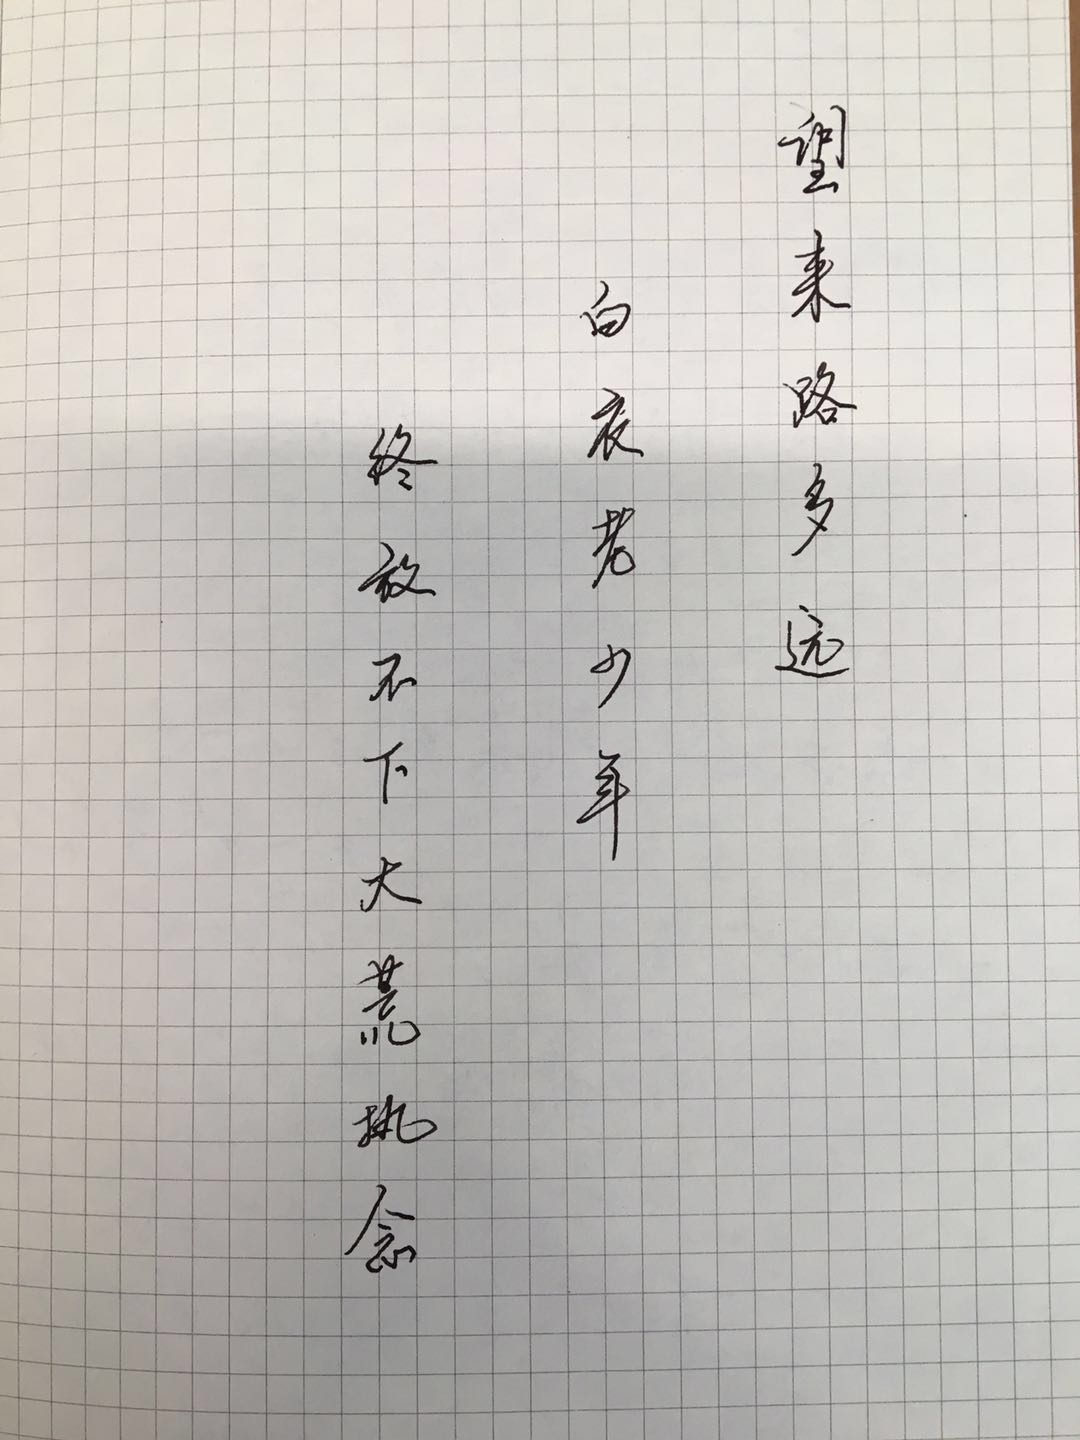 望来路多远
白衣老少年
终放不下大荒执念